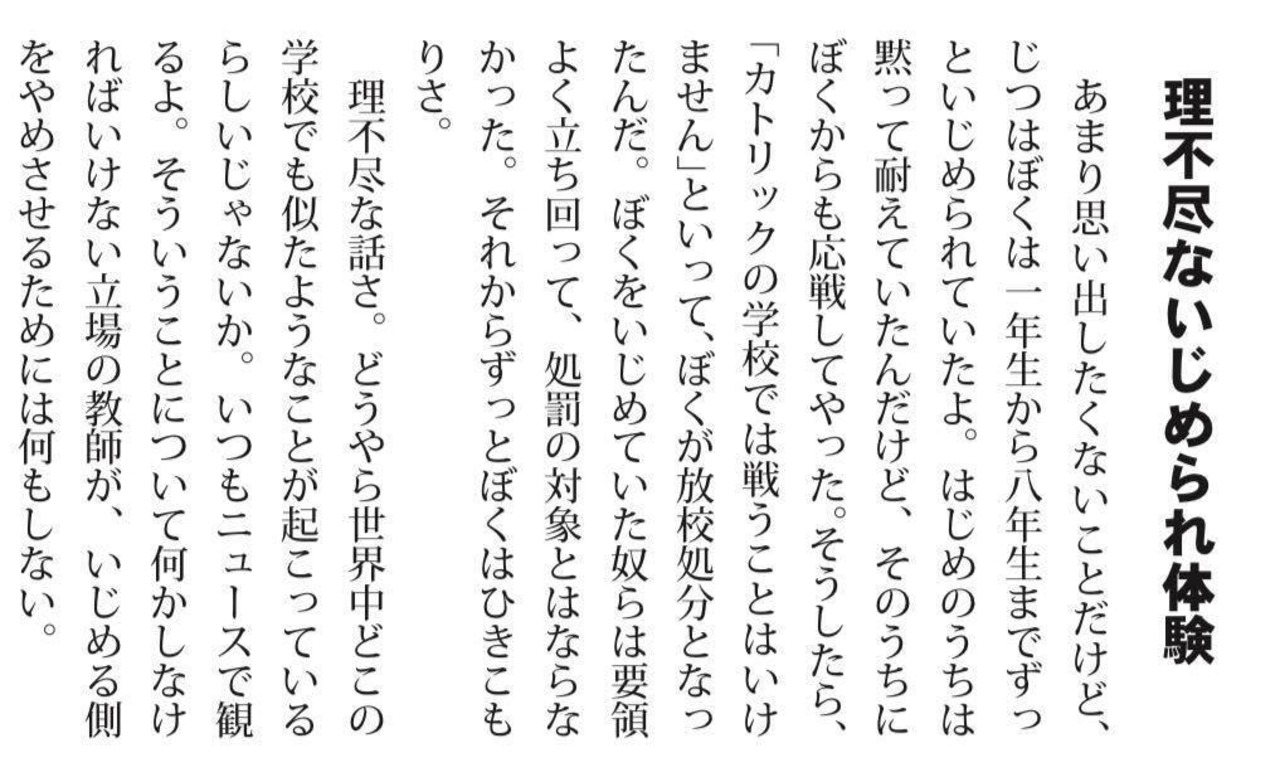 理不尽ないじめられ体験
あまり思い出したくないことだけど、
じつはぼくは一年生から八年生までずっ
といじめられていたよ。はじめのうちは
黙って耐えていたんだけど、そのうちに
ぼくからも応戦してやった。そうしたら、
「カトリックの学校では戦うことはいけ
ません」といって、ぼくが放校処分となっ
たんだ。ぼくをいじめていた奴らは要領
よく立ち回って、処罰の対象とはならな
かった。それからずっとぼくはひきこも
りさ。
理不尽な話さ。どうやら世界中どこの
学校でも似たようなことが起こっている
らしいじゃないか。いつもニュースで観
るよ。そういうことについて何かしなけ
ればいけない立場の教師が、いじめる側
をやめさせるためには何もしない。